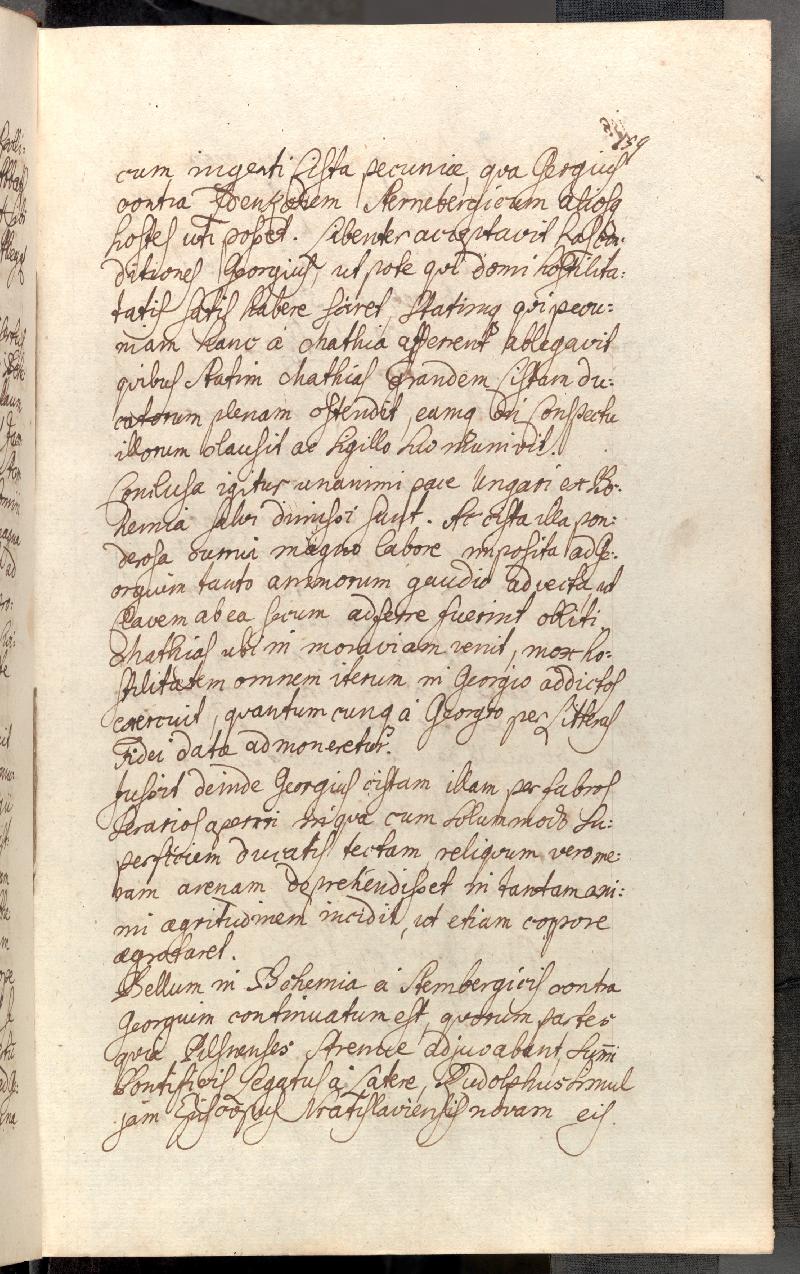 159
cum ingenti Cista pecuniæ, qua Georgius
contra Zdenkonem Sternebergicum aliosq
hostes uti posset. Libenter acceptavit has con:
ditiones Georgius, ut pote qui domi hostilita:
tatis satis habere sciret, Statimq qui pecu:
niam hanc a Mathia afferent ablegavit
quibus statim Mathias Grandem Cistam du:
catorum plenam ostendit, eamq in Conspectu
illorum clausit ac sigillo suo munivit.
Conclusa igitur unanimi pace Ungari et Bo:
hemia salvi dimissi sunt. At cista illa pon:
derosa currui magno labore imposita ad Ge:
orgium tanto animorum gaudio advecta, ut
Clavem ab ea secum adferre fuerint obliti.
Mathias ubi in moraviam venit, mox ho:
stilitatem omnem iterum in Georgio addictos
exercuit, quantumcunq a Georgio per Litteras
Fidei datæ admoneretur.
Jussit deinde Georgius cistam illam per fabros
ferarios aperiri in qua cum solummodo su:
perficiem ducatis tectam, reliquum vero me:
ram arenam deprehendisset in tantam ani:
mi ægritudinem incidit, ut etiam corpore
ægrotaret.
Bellum in Bohemia a Sternbergicis contra
Georgium continuatum est, quorum partes
quia Pilsnenses strenue adjuvabant, sum̄i
Pontificis Legatus a Latere, Rudolphus simul
jam Episcopus Vratislaviensis novam eis